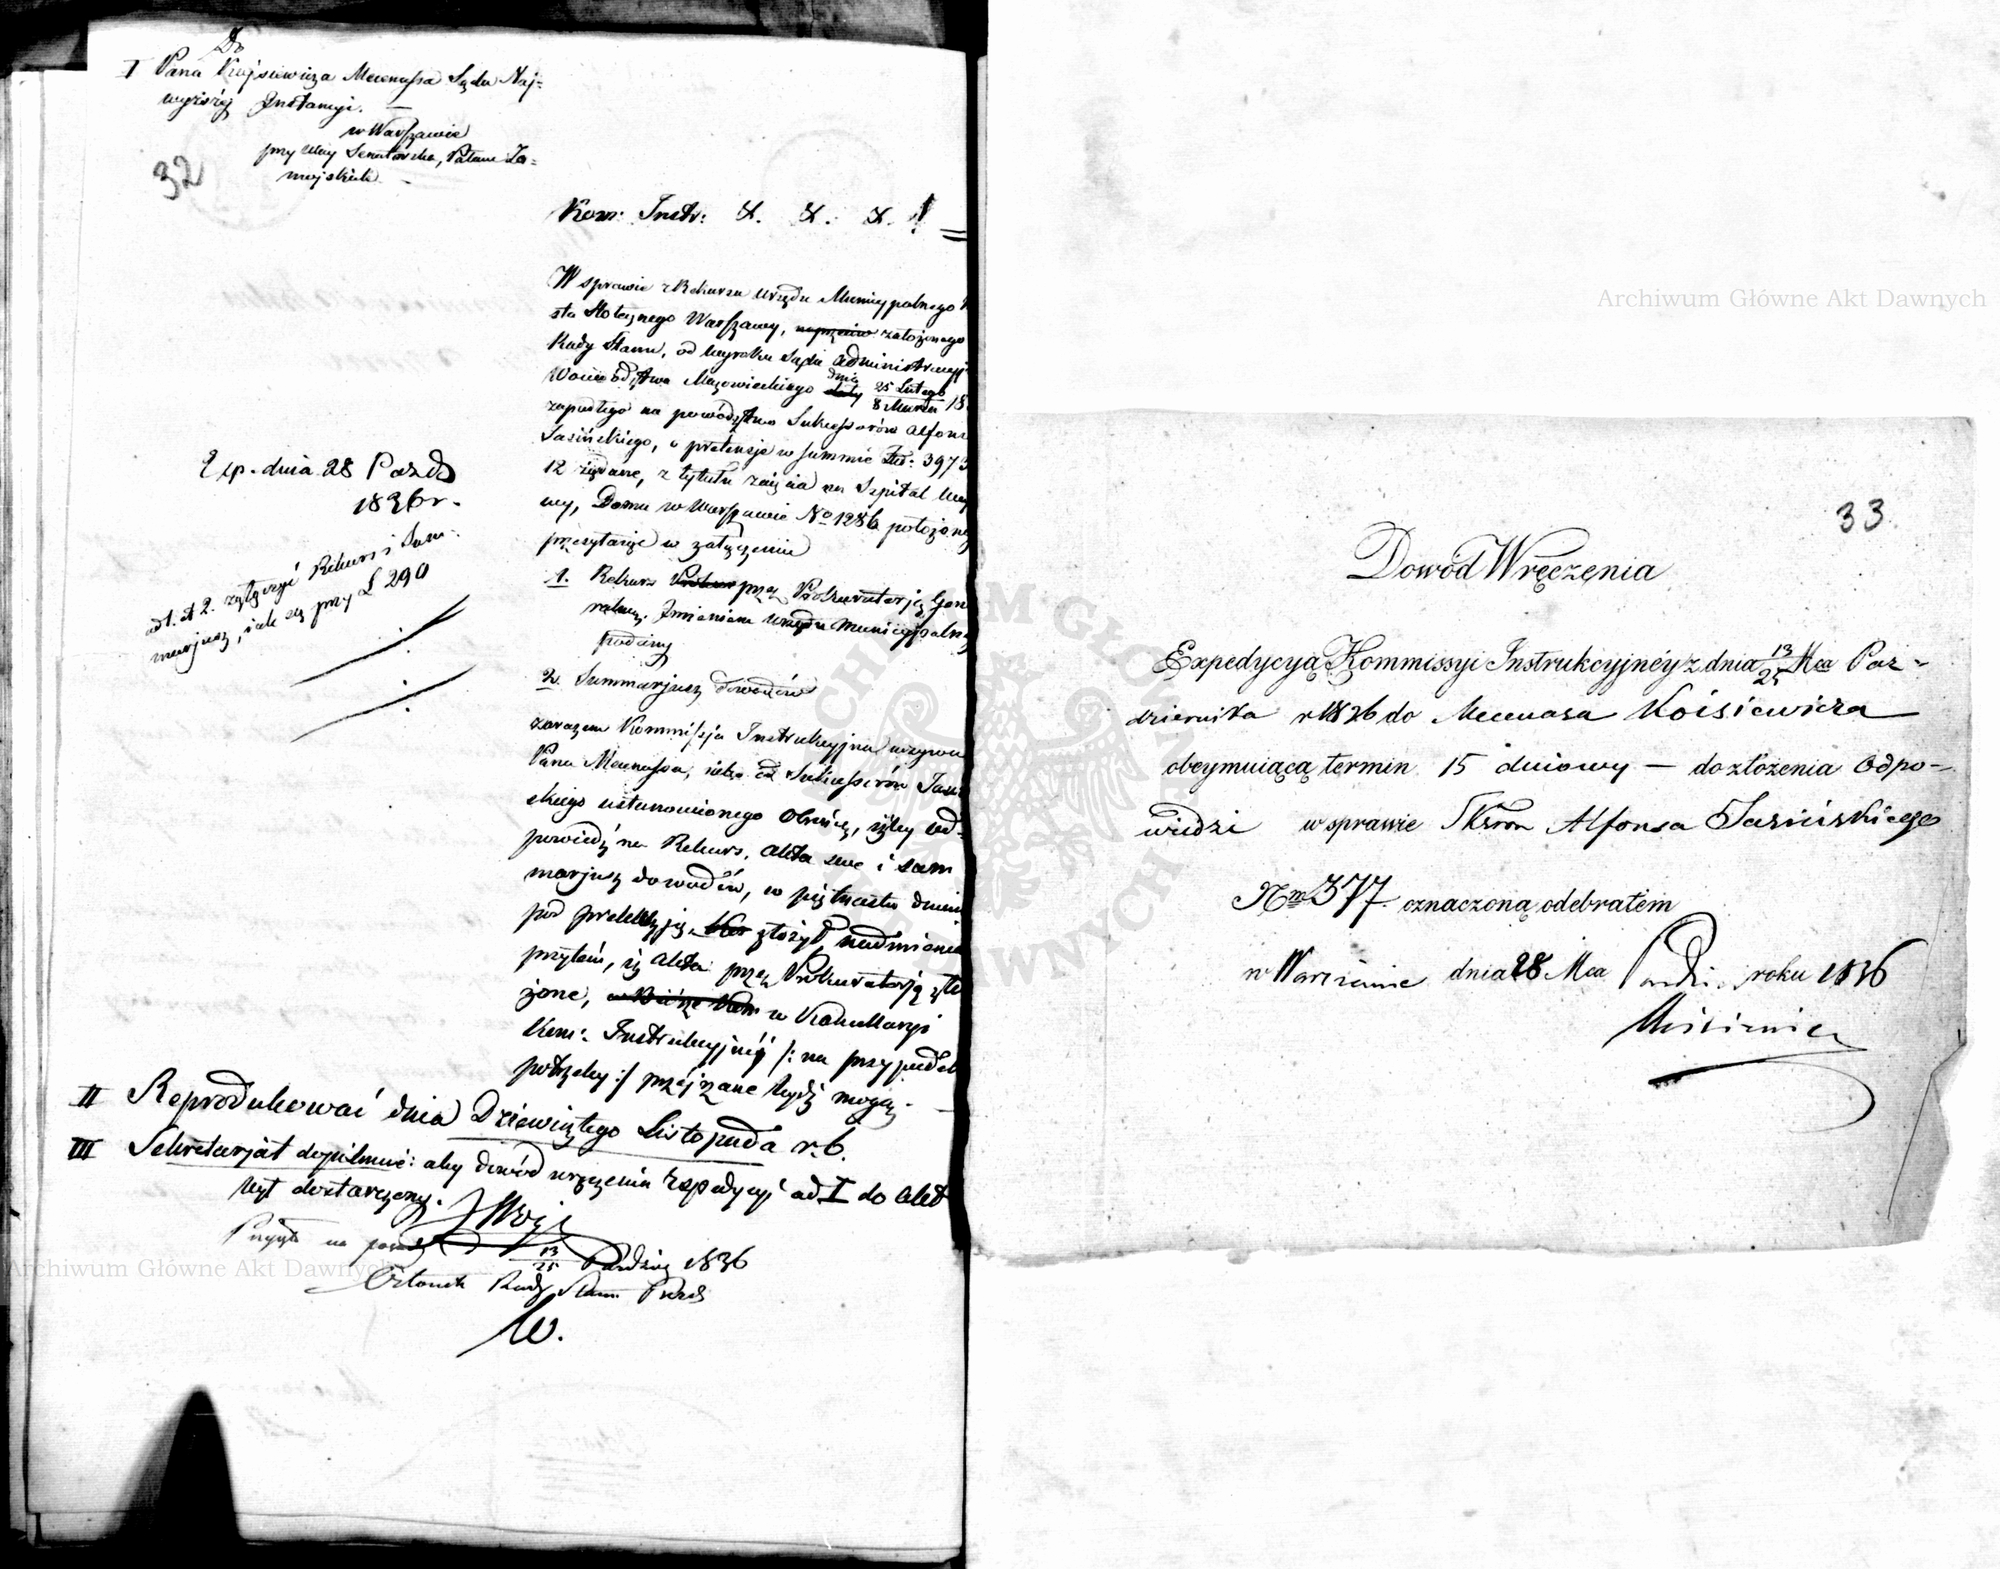 Do
I Pana Krysiewicza Mecenassa Sądu Naj=
wyższéj Instancyi. —
w Warszawie
przy Ulicy Senatorska, Pałacu Za=
mojskich. —
32
Kom: Instr: &. &. &. !
W sprawie z Rekursu Urzędu Municypalnego
sta Stołecznego Warszawy, założonego
Rady Stanu, od Wyroku Sądu Administracyj
Wojewódstwa Mazowieckiego dnia 25 Lutego
8 Marca 18
zapadłego na powództwo Sukcessorów Alfons
Jasińskiego, o pretensje w summie Złt: 3973
12 żądane, z tytułu zajęcia na Szpital
Domu w Warszawie No 1286 położone
przesyłając w załączeniu
1. Rekurs przez Prokuratorją Gen
ralną, Imieniem Urzędu Municypalne
podany
2. Summarjusz dowodów
zarazem Kommissja Instrukcyjna wzywa
Pana Mecenassa, jako od Sukcessorów Jasiń
skiego ustanowionego Obrońcę, iżby od=
powiedź na Rekurs, Akta swe i sum
marjusz dowodów, w piętnastu dniach
pod prekluzją, złożył, nadmienia
przytém, iż Akta przez Prokuratorją zło
żone, w Kancellaryi
Kom: Instrukcyjnéj /: na przypadek
potrzeby :/ przejrzane bydź mogą. —
Exp. dnia 28 Paźdz
1836 r.
ad 1. et 2. załączyć Rekurs i Sum:
marjusz, jak są przy § 290
II Reprodukować dnia Dziewiątego Listopada r. b.
III Sekretarjat dopilnuje: aby dowód wręczenia Expedycyi ad I do Akt
był dostarczony.
Przyjęto na posiedz 13
25 Paźdźier 1836
Członek Rady Stanu Prezd
W.
33
Dowód Wręczenia
Expedycyą Kommissyi Instrukcyjnéy z dnia 13
25 Mca Paz=
dziernika r 1836 do Mecenasa Koisiewicza
obeymuiącą termin 15 dniowy — do złożenia Odpo=
wiedzi w sprawie Skssrów Alfonsa Jasińskiego
Nrm 377. oznaczoną odebrałem
w Warszawie dnia 28 Mca Paźdz. roku 1836
Archiwum Główne Akt Dawnych
Archiwum Główne Akt Dawnych